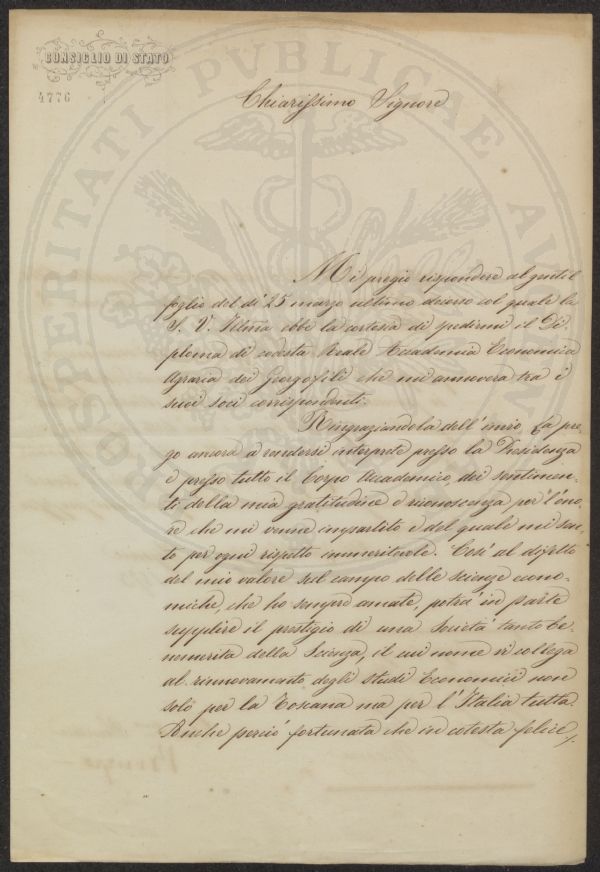 CONSIGLIO DI STATO
4776
Chiarissimo Signore
Mi pregio rispondere al gentil
foglio del dì 25 marzo ultimo decorso col quale la
S. V. Illma ebbe la cortesia di spedirmi il Di-
ploma di codesta Reale Accademia Economico
Agraria dei Georgofili che mi annovera tra i
suoi soci corrispondenti.
Ringraziandola dell'invio, La pre-
go ancora a rendersi interprete presso la Presidenza
e presso tutto il Corpo Accademico dei sentimen-
ti della mia gratitudine e riconoscenza per l'ono-
re che mi venne impartito e del quale mi sen-
to per ogni rispetto immeritevole. Così al difetto
del mio valore sul campo delle scienze econo-
miche, che ho sempre amate, potrà in parte
supplire il prestigio di una Società tanto be-
nemerita della Scienza, il cui nome si collega
al rinnovamento degli studi Economici non
solo per la Toscana ma per l'Italia tutta.
Anche perciò fortunata che in cotesta felice
PROSPERITATI PUBLICAE AU